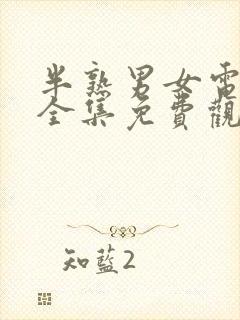 半熟男女電
全集免費觀
知藍2